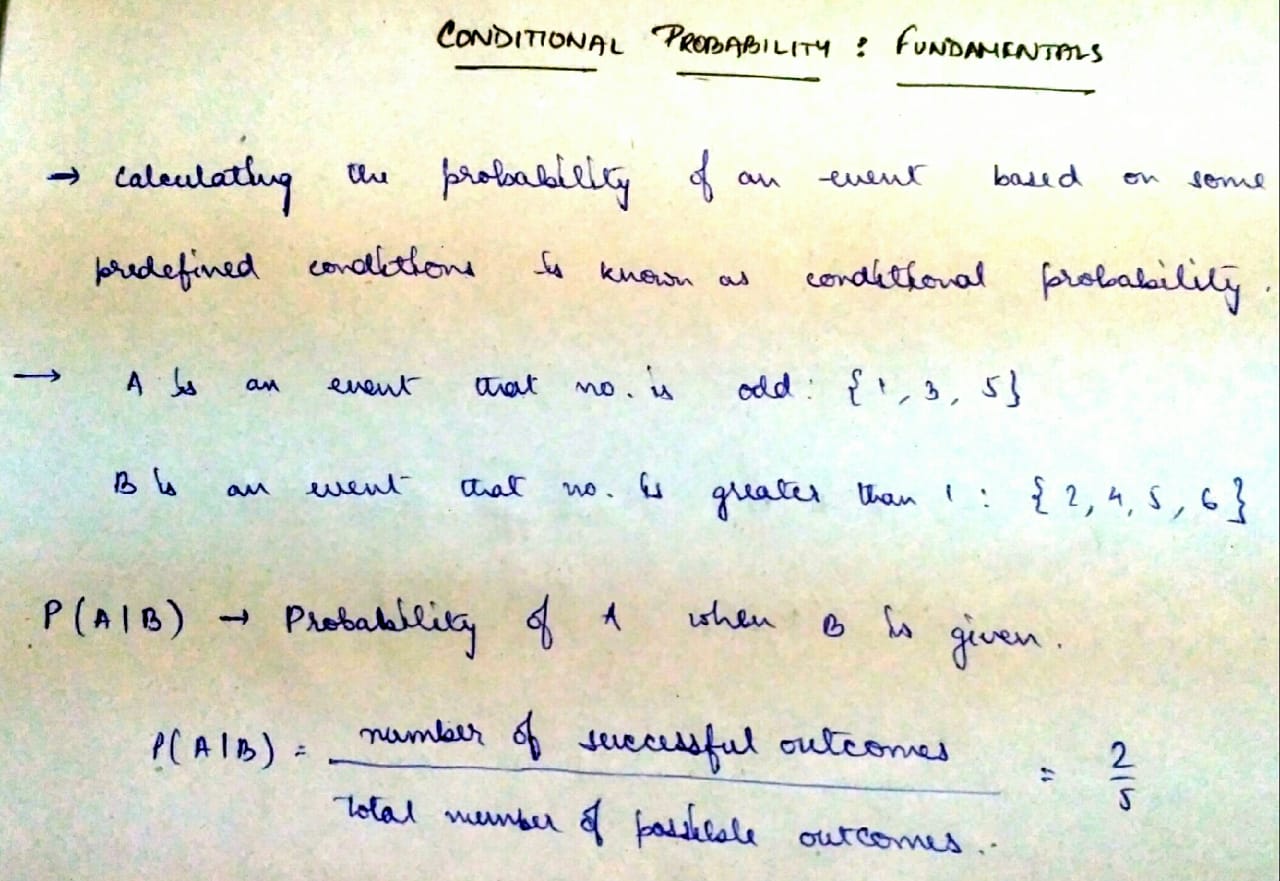 CONDITIONAL PROBABILITY : FUNDAMENTALS
→ Calculating the probability of an event based on some
predefined conditions is known as conditional probability.
→ A is an event that no. is odd : {1, 3, 5}
B is an event that no. is greater than 1 : {2, 4, 5, 6}
P(A|B) → Probability of A when B is given.
P(A|B) = number of successful outcomes = 2/5
Total number of possible outcomes..